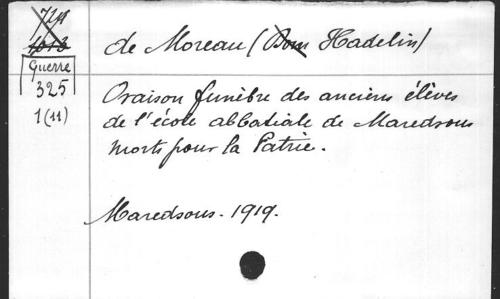 724
1013
Guerre
325
1(11)
de Moreau (Dom Hadelin)
Oraison funèbre des anciens élèves
de l'école abbatiale de Maredsous
morts pour la Patrie.
Maredsous. 1919.